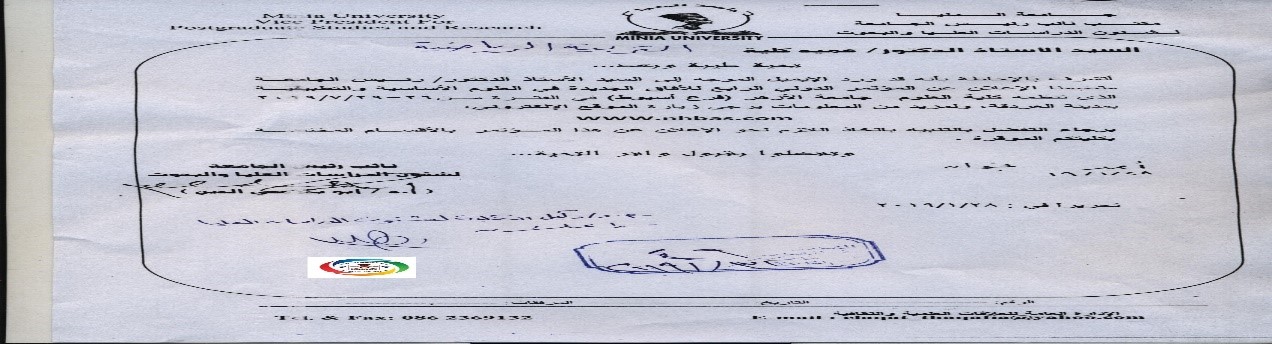 Minia University
Vice President For
Postgraduate Studies and Research
جامعة المنيا
مكتب نائب رئيس الجامعة
لشئون الدراسات العليا والبحوث
MINIA UNIVERSITY
السيد الأستاذ الدكتور/ عميد كلية التربية الرياضية
تحية طيبة وبعد...
نتشرف بالإحاطة بأنه قد ورد الإيميل الموجه إلى السيد الأستاذ الدكتور/ رئيس الجامعة
الإعلان عن المؤتمر الدولي الرابع للآفاق الجديدة في العلوم الأساسية والتطبيقية
الذي تنظمه كلية العلوم جامعة الأزهر (فرع أسيوط) في الفترة من
بمدينة الغردقة، ولمزيد من المعلومات يرجى زيارة الموقع الإلكتروني:
www.nhbas.com
برجاء التفضل بالتنبيه باتخاذ اللازم نحو الإعلان عن هذا المؤتمر بالأقسام
بكليتكم الموقرة.
وتفضلوا بقبول وافر التحية...
نائب رئيس الجامعة
لشئون الدراسات العليا والبحوث
تحريرا في : ٢٠١٩/١/٢٨
الرقم:
التاريخ:
المرفقات:
الإدارة العامة للعلاقات العلمية والثقافية
Tel. & Fax: 086 2369132